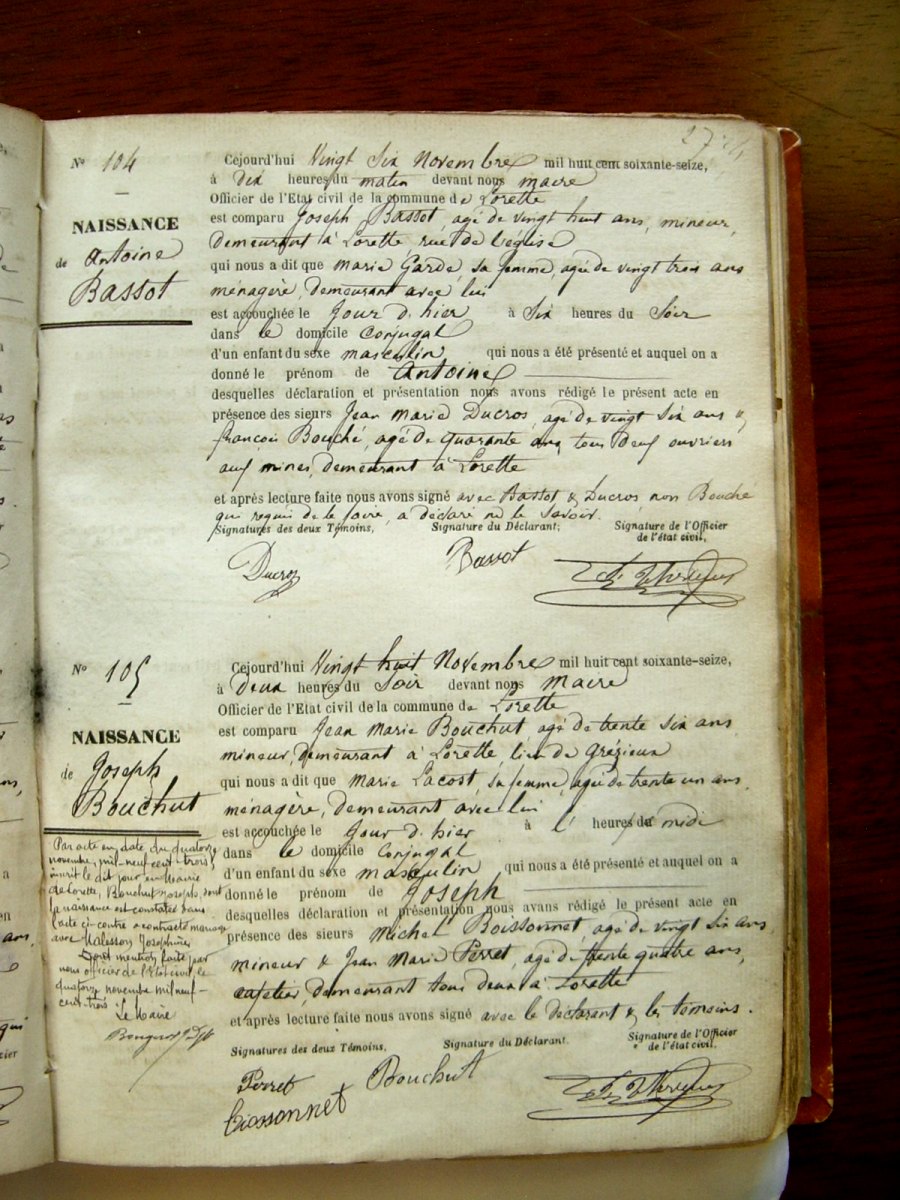 27
Nº 104
NAISSANCE
de Antoine
Bassot
Cejourd'hui Vingt Six Novembre mil huit cent soixante-seize,
à Dix heures du matin devant nous maire
Officier de l'Etat civil de la commune de Lorette
est comparu Joseph Bassot, agé de vingt huit ans, mineur,
demeurant à Lorette rue de l'église
qui nous a dit que Marie Garde, sa femme, agée de vingt trois ans
ménagère, demeurant avec lui
est accouchée le Jour d'hier à Six heures du Soir
dans le domicile Conjugal
d'un enfant du sexe masculin qui nous a été présenté et auquel on a
donné le prénom de Antoine
desquelles déclaration et présentation nous avons rédigé le présent acte en
présence des sieurs Jean Marie Ducros, agé de vingt six ans &
françois Bouché, agé de quarante ans, tous deux ouvriers
aux mines, demeurant à Lorette
et après lecture faite nous avons signé avec Bassot & Ducros, non Bouché
qui requis de le faire, a déclaré ne le savoir.
Signatures des deux Témoins, Signature du Déclarant; Signature de l'Officier
de l'état civil,
Ducros Bassot
Nº 105
NAISSANCE
de Joseph
Bouchut
Cejourd'hui Vingt huit Novembre mil huit cent soixante-seize,
à Deux heures du Soir devant nous maire
Officier de l'Etat civil de la commune de Lorette
est comparu Jean Marie Bouchut, agé de trente six ans
mineur, demeurant à Lorette, lieu de Grézieux
qui nous a dit que Marie Lacost, sa femme, agée de trente un ans
ménagère, demeurant avec lui
est accouchée le Jour d'hier à l' heure de midi
dans le domicile Conjugal
d'un enfant du sexe masculin qui nous a été présenté et auquel on a
donné le prénom de Joseph
desquelles déclaration et présentation nous avons rédigé le présent acte en
présence des sieurs Michel Boissonnet, agé de vingt six ans,
mineur & Jean Marie Perret, agé de trente quatre ans,
cafetier, demeurant tous deux à Lorette
et après lecture faite nous avons signé avec le déclarant & les témoins.
Signatures des deux Témoins, Signature du Déclarant. Signature de l'Officier
de l'état civil.
Perret Bouchut
Boissonnet
Par acte en date du quatorze
novembre, mil-neuf-cent-trois,
inscrit le dit jour en Mairie
de Lorette, Bouchut Joseph, dont
la naissance est constatée dans
l'acte ci-contre a contracté mariage
avec Malesson Joséphine
Dont mention faite par
nous officier de l'Etat civil, le
quatorze novembre mil neuf-
cent-trois
Le Maire